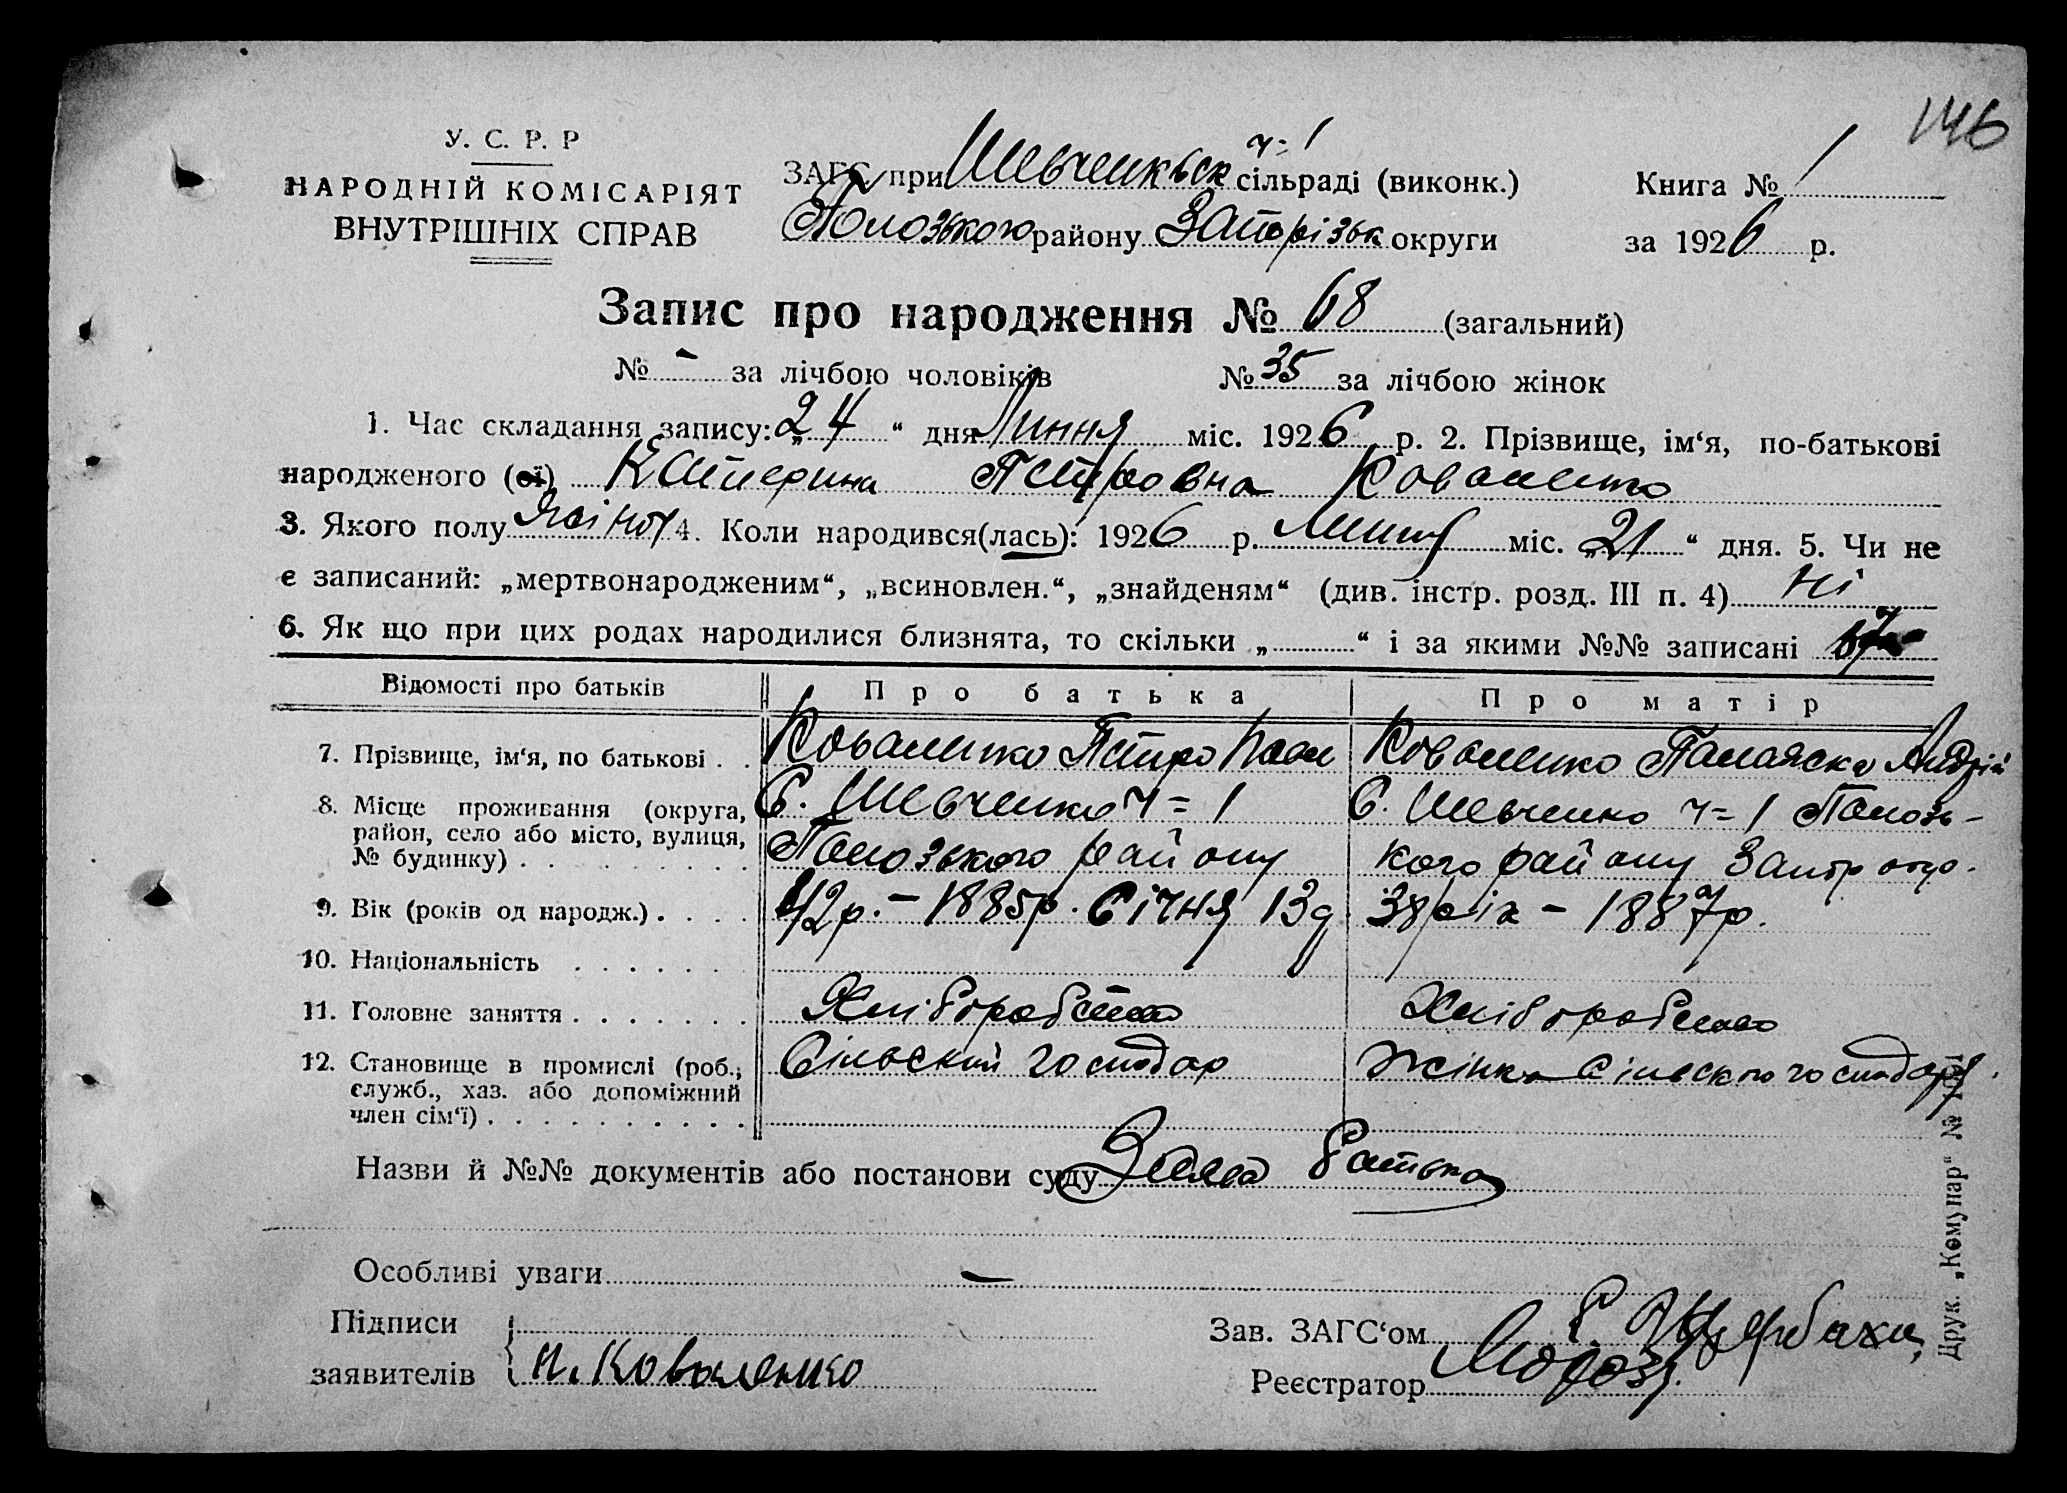 146
У. С. Р. Р
НАРОДНІЙ КОМІСАРІЯТ
ВНУТРІШНІХ СПРАВ
ЗАГС при Шевченкьск ч=1 сільраді (виконк.) Книга № 1
Полозького району Запорізьк округи за 1926 р.
Запис про народження № 68 (загальний)
№ - за лічбою чоловіків № 35 за лічбою жінок
1. Час складання запису: „24“ дня Липня міс. 1926 р. 2. Прізвище, ім‘я, по-батькові
народженого (ої) Катерина Петровна Коваленко
3. Якого полу Жіноч 4. Коли народився(лась): 1926 р. Липня міс. „21“ дня. 5. Чи не
є записаний: „мертвонародженим“, „всиновлен.“, „знайденям“ (див. інстр. розд. III п. 4) Ні
6. Як що при цих родах народилися близнята, то скільки „ “ і за якими №№ записані
Відомості про батьків Про батька Про матір
7. Прізвище, ім‘я, по батькові . . Коваленко Петро Коваленко Палажка Андрій
8. Місце проживання (округа, район, село або місто, вулиця, № будинку) . . С. Шевченко ч=1 С. Шевченко ч=1 Полозь-
Полозького району кого району Запор окр.
9. Вік (років од народж.) . . . . 42р. – 1885р. Січня 13д 38 рік – 1887р.
10. Національність . . . . . .
11. Головне заняття . . . . . . . Хліборобство Хліборобство
12. Становище в промислі (роб., служб., хаз. або допоміжний член сім‘ї) . . Сільский господар Жінка сільского господаря.
Назви й №№ документів або постанови суду Заява батька
Особливі уваги –
Підписи
заявителів П. Коваленко
Зав. ЗАГС‘ом
Реєстратор Мороз
Друк. „Комунар“ №